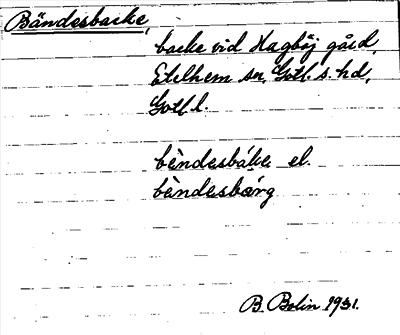 Bändesbacke,
backe vid Hagböj gård,
Etelhem sn, Gotl. s. hd,
Gotl. l.
bèndesbáke el.
bèndesbárg
B. Bolin 1931.